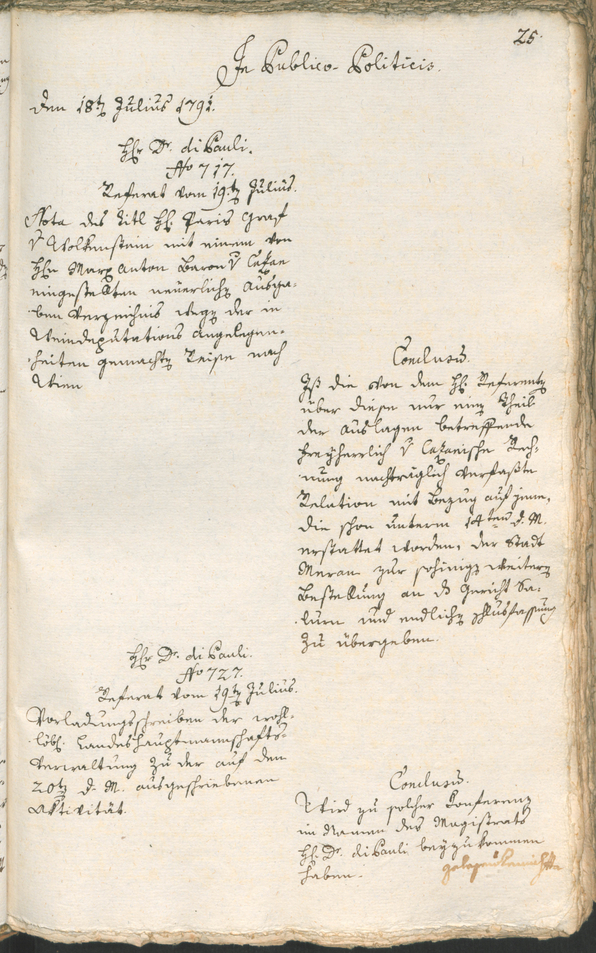 25.
In Publico-Politicis.
den 18tn Julius 1791.
Hhr Dr. di Pauli.
No 717.
Referat vom 19tn Julius.
Nota des titl Hh. Paris Graf
v Wolkenstein mit einem von
Hhn Marx Anton Baron v Cazan
eingestellten neuerlichn Ausga-
ben Verzeichnis wegn der in
Weindeputations Angelegen-
heiten gemachtn Reise nach
Wien
Conclusum.
Ist die von dem Hh. Referentn
über diese nur einn Theil
der Auslagen betreffende
freyherrlich v Cazanische Rech-
nung nachträglich verfaßte
Relation mit Bezug auf jene,
die schon unterm 14ten d. M.
erstattet worden, der Stadt
Meran zur weitern
Bestellung an ds Gericht Sa-
lurn und endlichn Schlusfassung
zu übergeben.
Hhr Dr. di Pauli.
No 727.
Referat vom 19tn Julius.
Vorladungsschreiben der wohl-
löbl. Landeshauptmannschafts-
Verwaltung zu der auf den
20tn d. M. ausgeschriebenen
Aktivität.
Conclusum.
Wird zu solcher Konferenz
im Namen des Magistrats
Hh. Dr. di Pauli beyzukommen
haben.